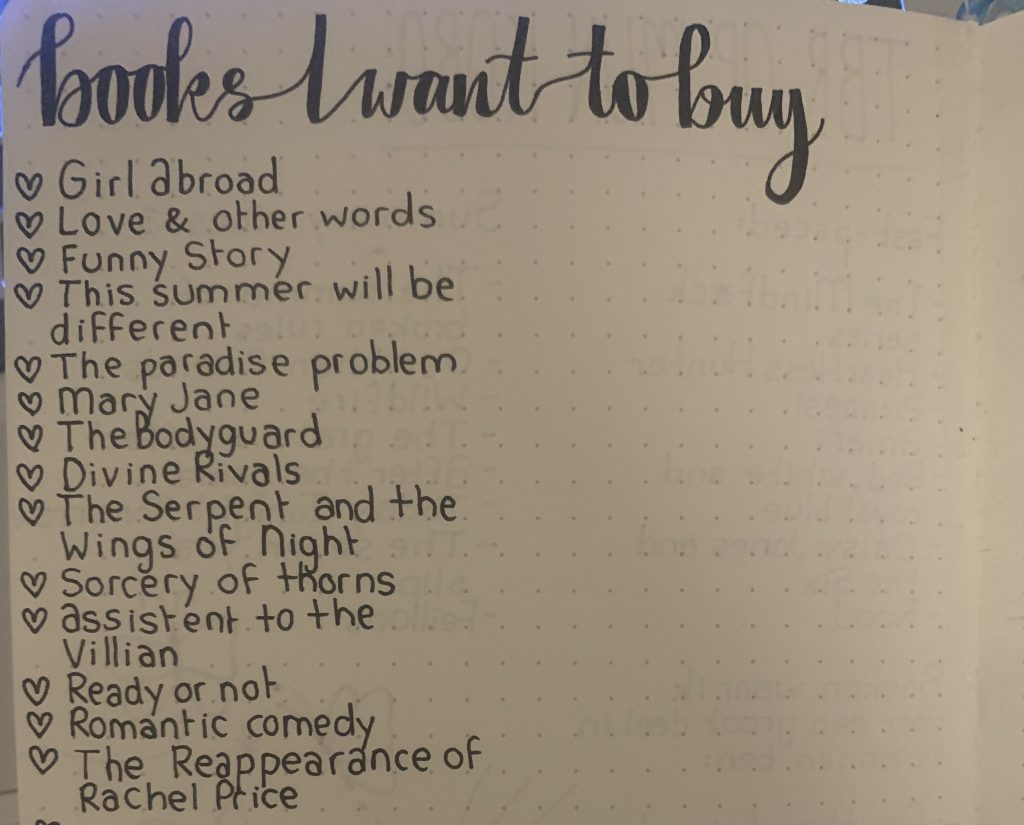 books I want to buy
♡ Girl abroad
♡ Love & other words
♡ Funny Story
♡ This summer will be
different
♡ The paradise problem
♡ Mary Jane
♡ The Bodyguard
♡ Divine Rivals
♡ The Serpent and the
Wings of Night
♡ Sorcery of thorns
♡ assistent to the
Villian
♡ Ready or not
♡ Romantic comedy
♡ The Reappearance of
Rachel Price